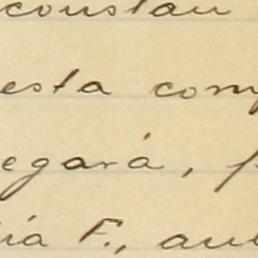 constan
esta com
egará, p
ia F., aut